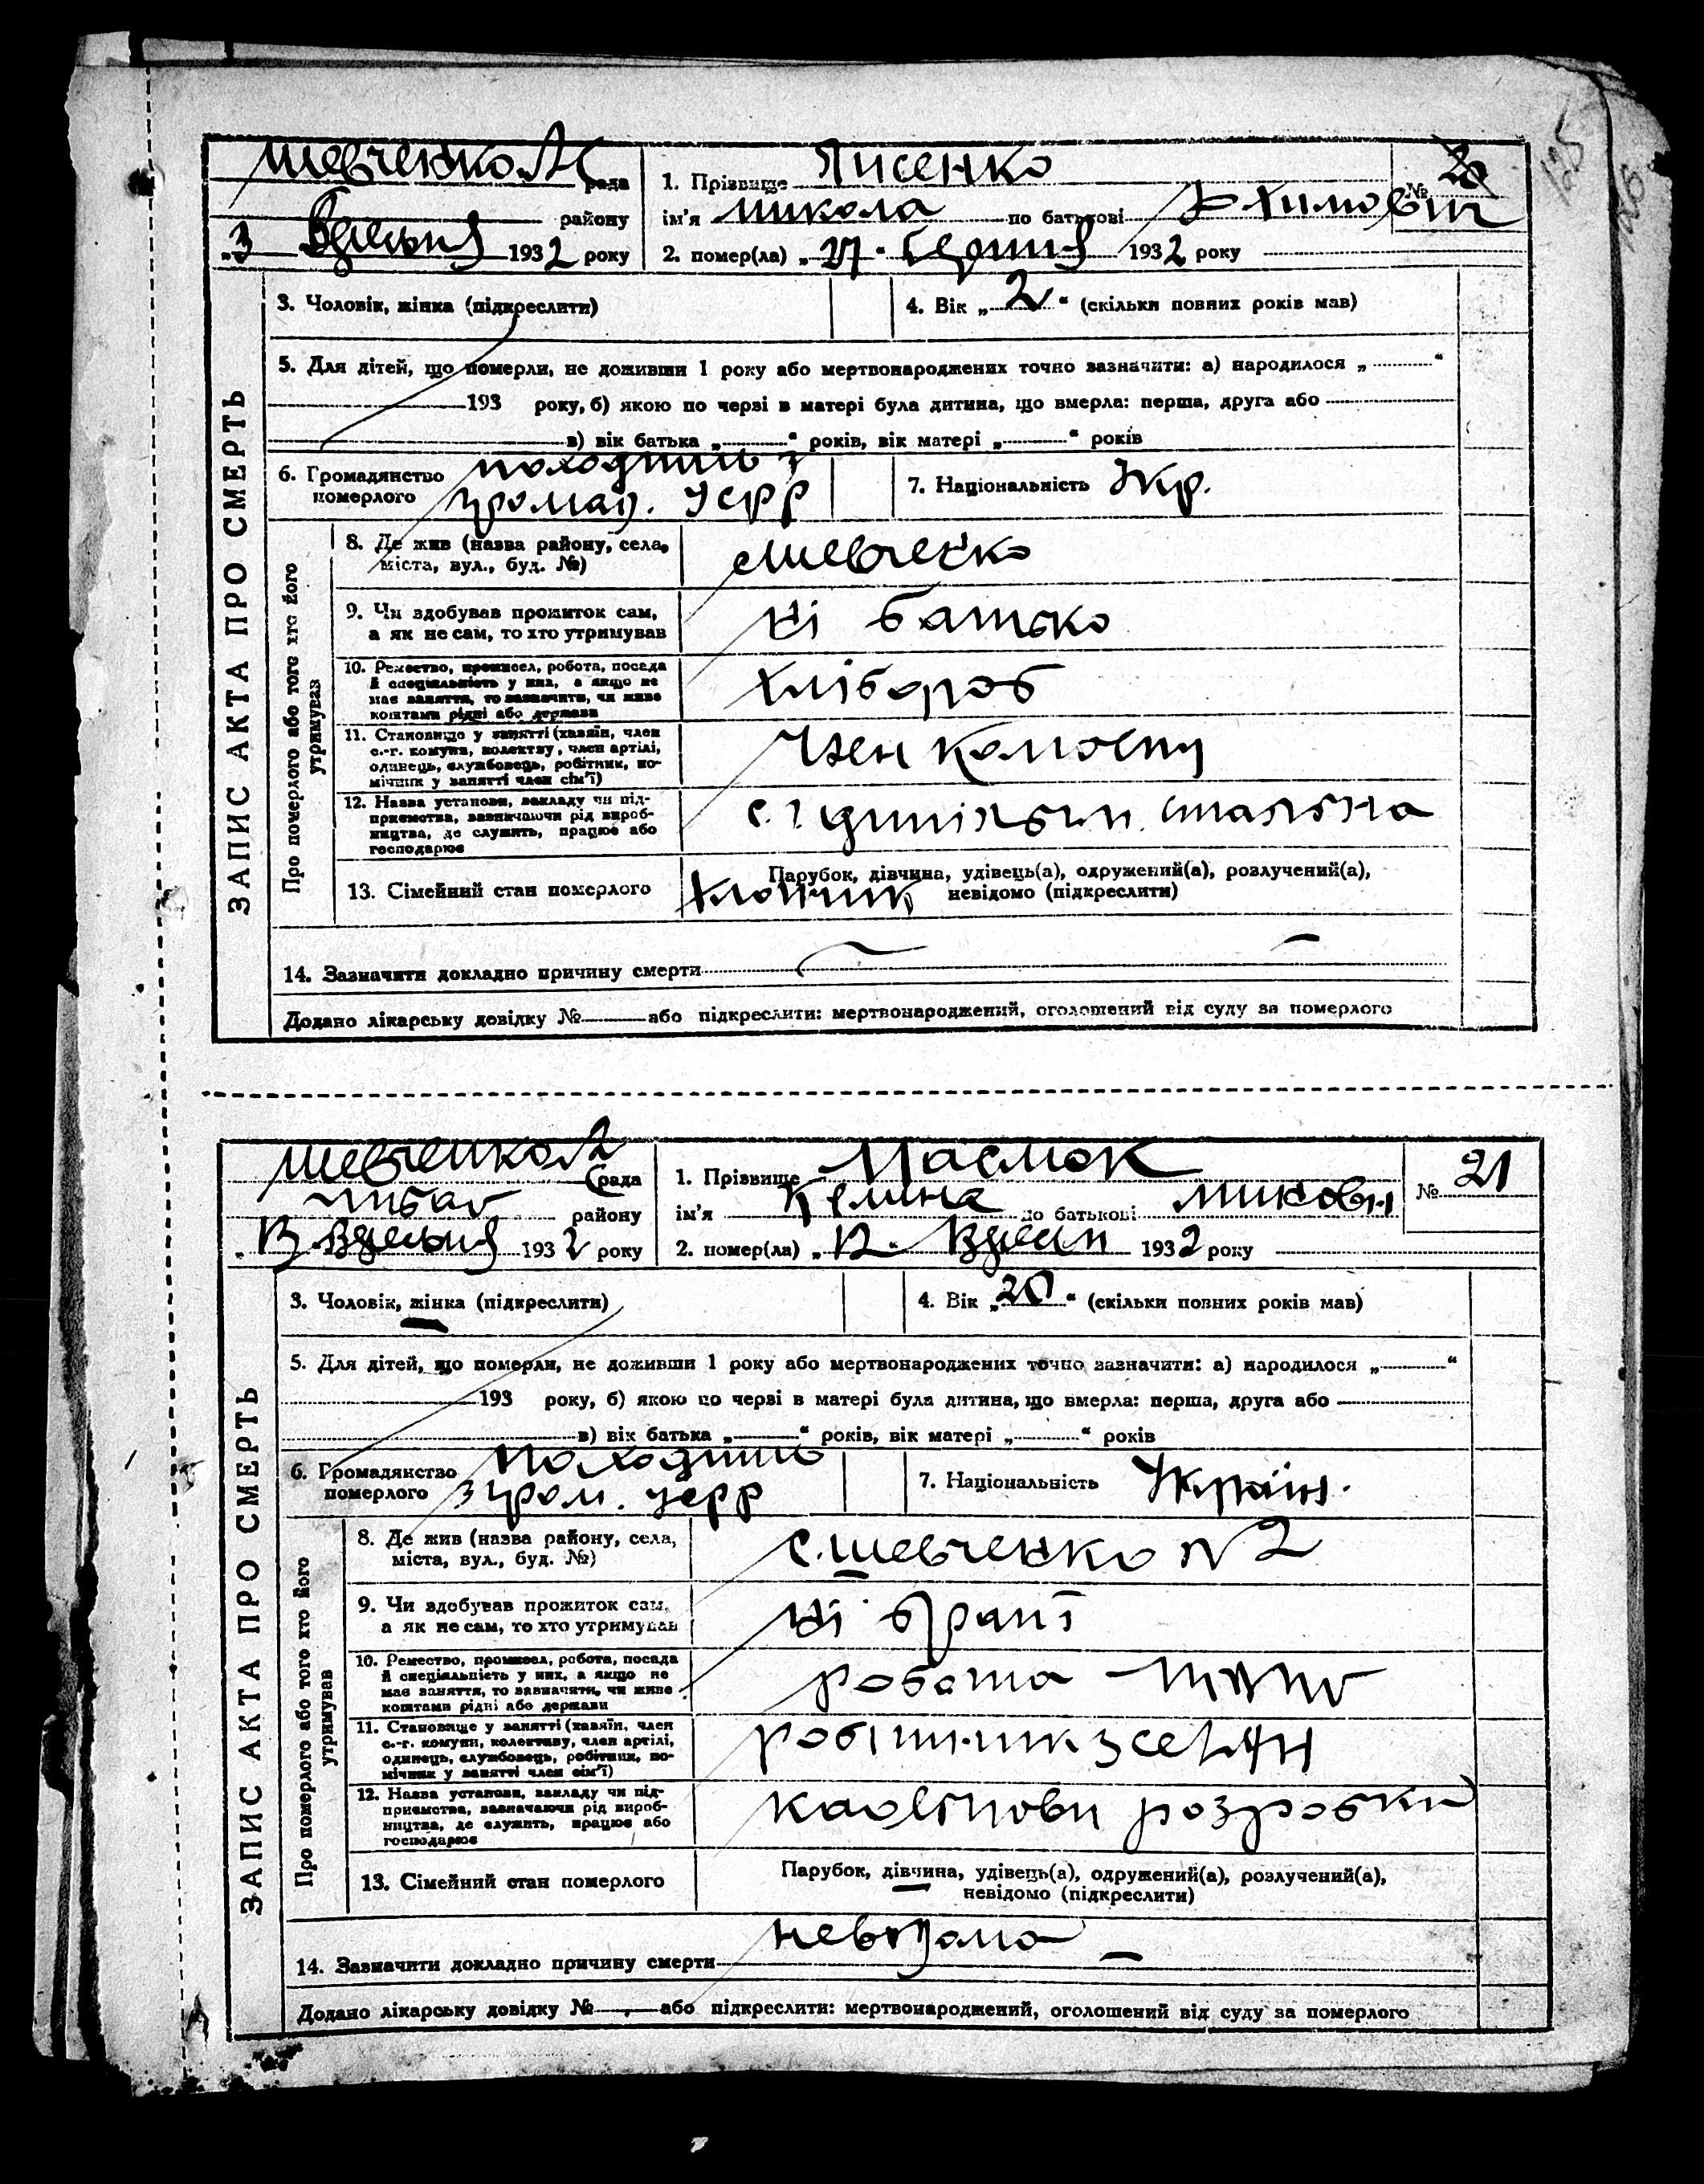 Шевченко
рада
району
„3 Вересня 1932 року
1. Прізвище Лисенко
ім'я Микола по батькові
2. помер(ла) „27 Серпня 1932 року
№ 20
ЗАПИС АКТА ПРО СМЕРТЬ
3. Чоловік, жінка (підкреслити)
4. Вік „2“ (скільки повних років мав)
5. Для дітей, що померли, не доживши 1 року або мертвонароджених точно зазначити: а) народилося „ “
193 року, б) якою по черзі в матері була дитина, що вмерла: перша, друга або
в) вік батька „ “ років, вік матері „ “ років
6. Громадянство померлого походить з
громад. УСРР
7. Національність Укр.
Про померлого або того хто його утримував
8. Де жив (назва району, села,
міста, вул., буд. №)
с Шевченко
9. Чи здобував прожиток сам,
а як не сам, то хто утримував
Ні батько
10. Ремество, промисел, робота, посада
й спеціяльність у них, а якщо не
має заняття, то зазначити, чи живе
коштами рідні або держави
хлібороб
11. Становище у занятті (хазяїн, член
с.-г. комуни, колективу, член артілі,
одинець, службовець, робітник, по-
мічник у занятті член сім'ї)
Член
12. Назва установи, закладу чи під-
приємства, зазначаючи рід вироб-
ництва, де служить, працює або
господарює
13. Сімейний стан померлого
Парубок, дівчина, удівець(а), одружений(а), розлучений(а),
невідомо (підкреслити)
Хлопчик
14. Зазначити докладно причину смерти
Додано лікарську довідку № або підкреслити: мертвонароджений, оголошений від суду за померлого
Шевченко
рада
району
Вересня 1932 року
1. Прізвище
ім'я по батькові
2. помер(ла) „12 1932 року
№ 21
ЗАПИС АКТА ПРО СМЕРТЬ
3. Чоловік, жінка (підкреслити)
4. Вік „20“ (скільки повних років мав)
5. Для дітей, що померли, не доживши 1 року або мертвонароджених точно зазначити: а) народилося „ “
193 року, б) якою по черзі в матері була дитина, що вмерла: перша, друга або
в) вік батька „ “ років, вік матері „ “ років
6. Громадянство померлого походить
з гром. УСРР
7. Національність Україн.
Про померлого або того хто його утримував
8. Де жив (назва району, села,
міста, вул., буд. №)
с. Шевченко N 2
9. Чи здобував прожиток сам,
а як не сам, то хто утримував
Ні браті
10. Ремество, промисел, робота, посада
й спеціяльність у них, а якщо не
має заняття, то зазначити, чи живе
коштами рідні або держави
робота
11. Становище у занятті (хазяїн, член
с.-г. комуни, колективу, член артілі,
одинець, службовець, робітник, по-
мічник у занятті член сім'ї)
робітник з селян
12. Назва установи, закладу чи під-
приємства, зазначаючи рід вироб-
ництва, де служить, працює або
господарює
каолінови розробки
13. Сімейний стан померлого
Парубок, дівчина, удівець(а), одружений(а), розлучений(а),
невідомо (підкреслити)
14. Зазначити докладно причину смерти невідомо
Додано лікарську довідку № або підкреслити: мертвонароджений, оголошений від суду за померлого